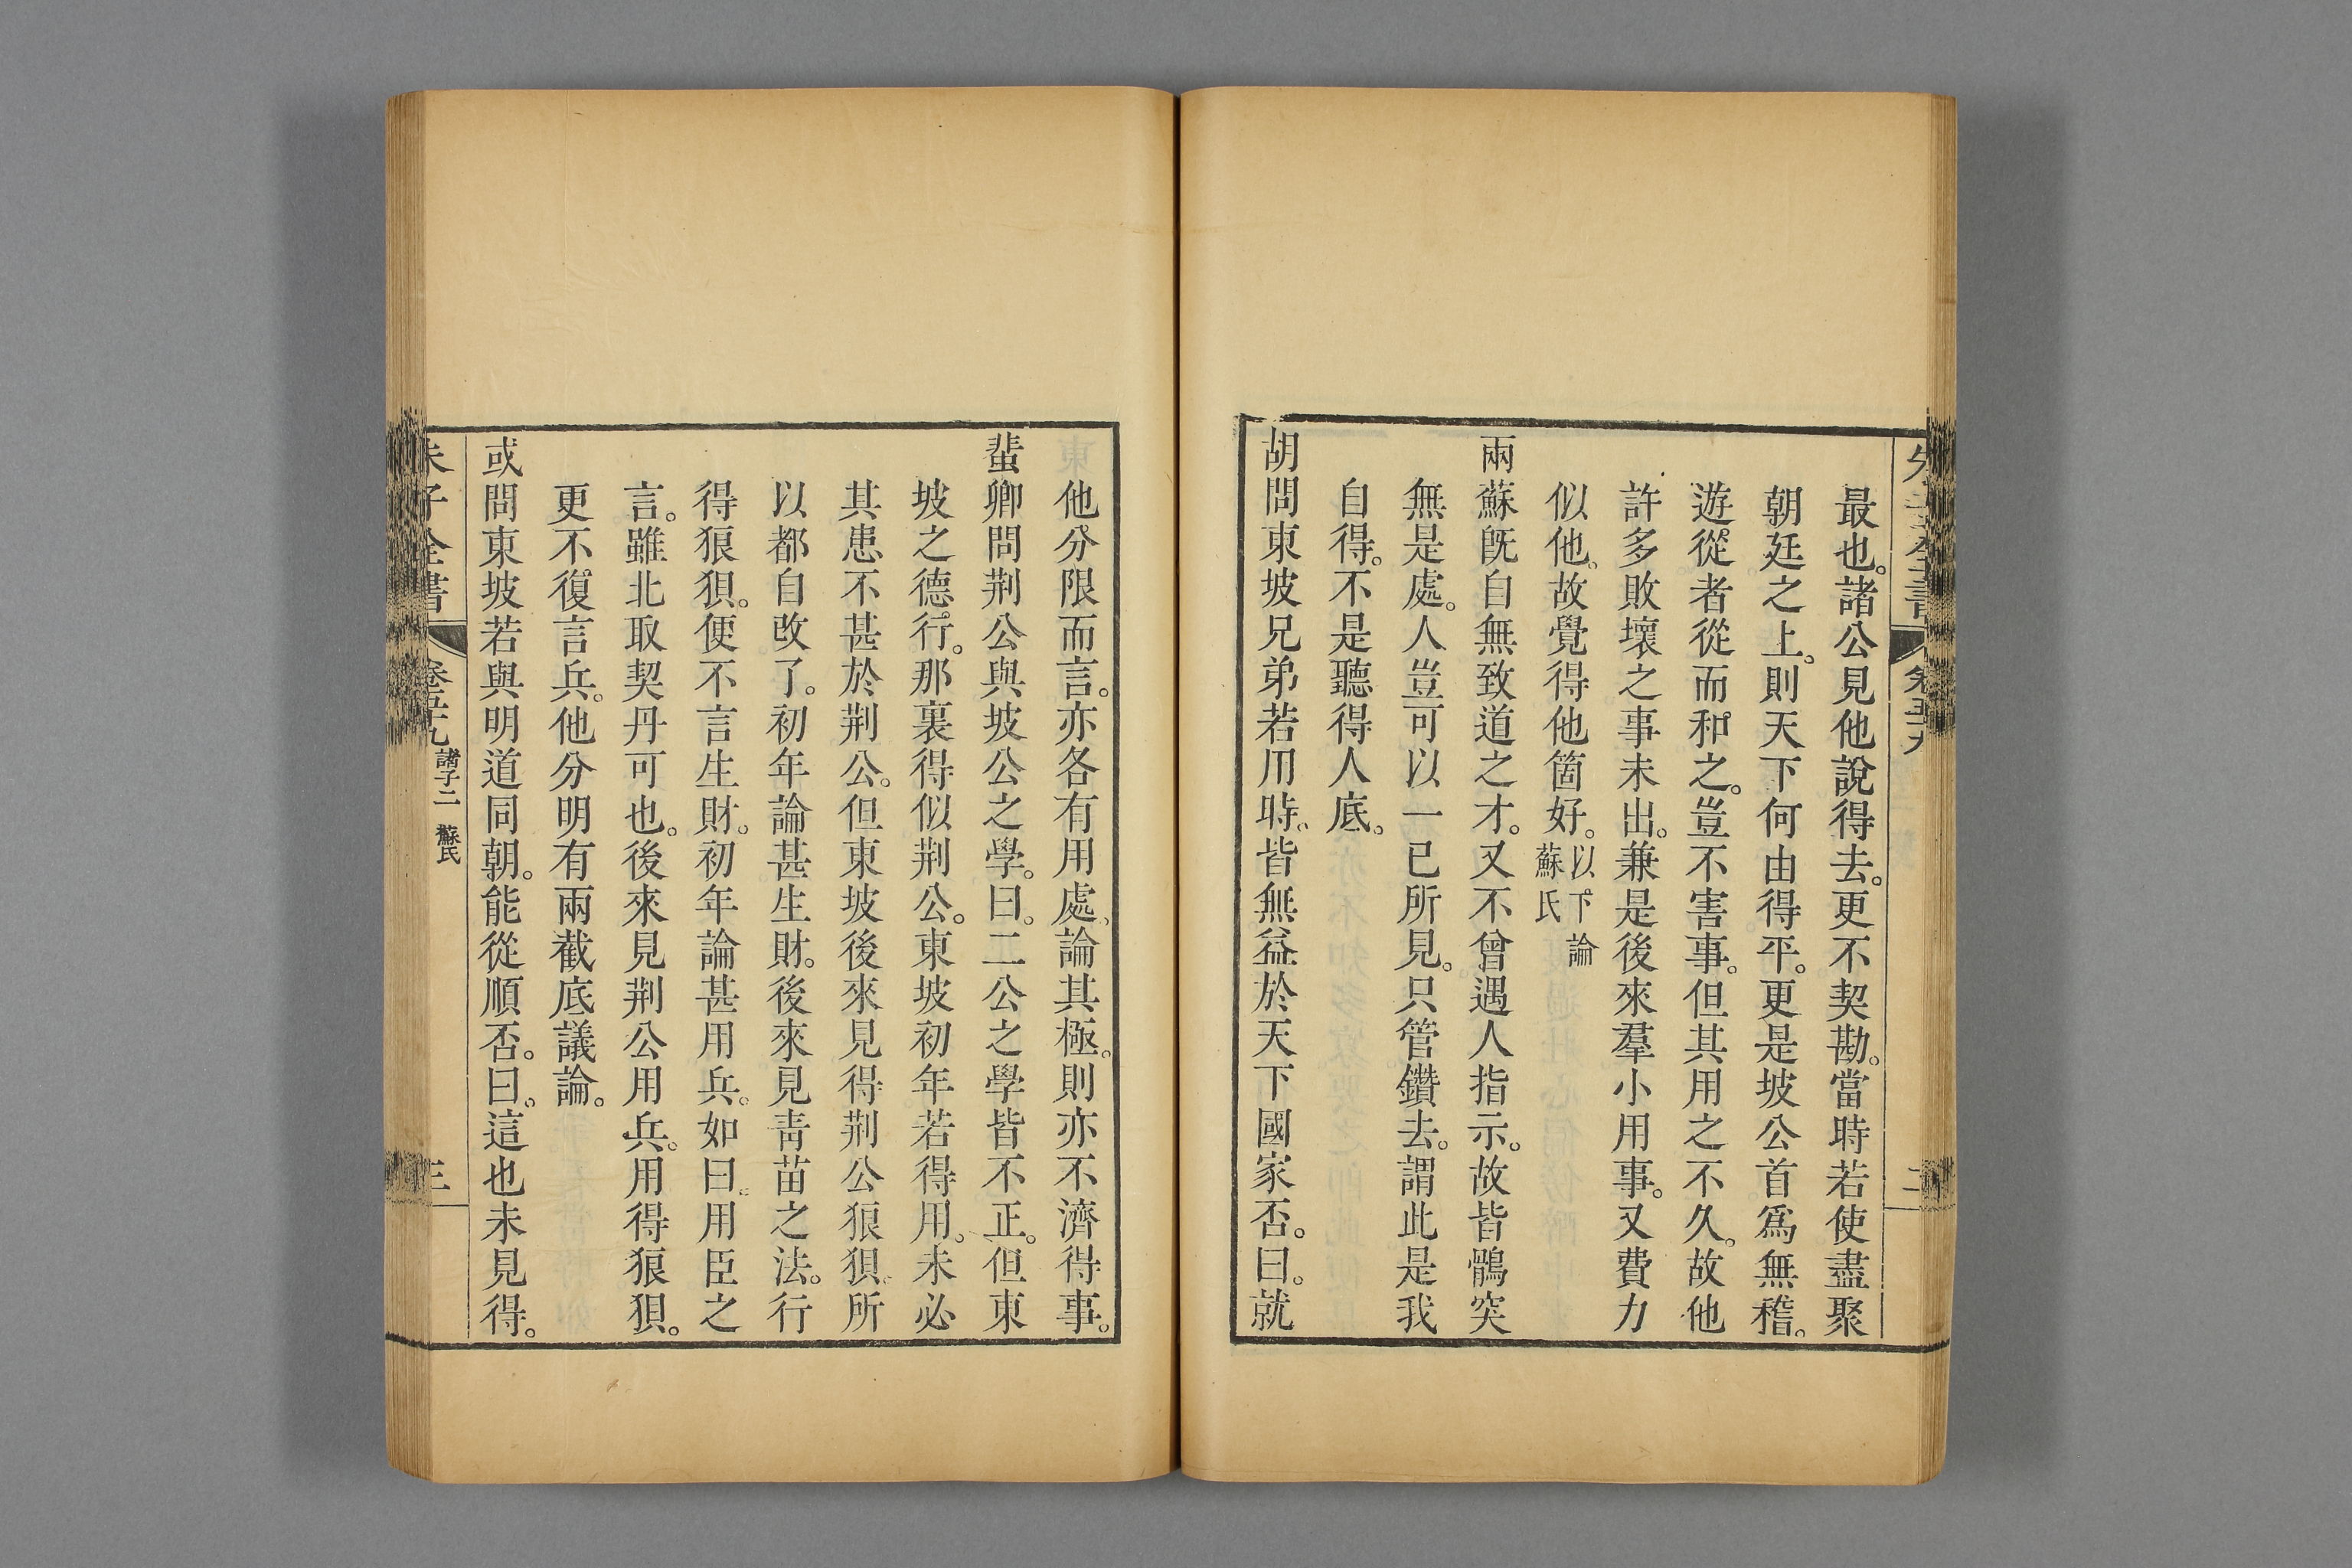 朱子全書 卷五十九 二
最也。諸公見他說得去。更不契勘。當時若使盡聚
朝廷之上。則天下何由得平。更是坡公首爲無稽。
遊從者從而和之。豈不害事。但其用之不久。故他
許多敗壞之事未出。兼是後來羣小用事。又費力
似他。故覺得他箇好。以下論
蘇氏
兩蘇旣自無致道之才。又不曾遇人指示。故皆鶻突
無是處。人豈可以一已所見。只管鑽去。謂此是我
自得。不是聽得人底。
胡問東坡兄弟若用時。皆無益於天下國家否。曰。就
他分限而言。亦各有用處。論其極。則亦不濟得事。
蜚卿問荆公與坡公之學。曰。二公之學皆不正。但東
坡之德行。那裏得似荆公。東坡初年若得用。未必
其患不甚於荆公。但東坡後來見得荆公狼狽。所
以都自改了。初年論甚生財。後來見靑苗之法。行
得狼狽。便不言生財。初年論甚用兵。如曰。用臣之
言。雖北取契丹可也。後來見荆公用兵。用得狼狽。
更不復言兵。他分明有兩截底議論。
或問東坡若與明道同朝。能從順否。曰。這也未見得。
朱子全書 卷五十九 諸子二 蘇氏 三